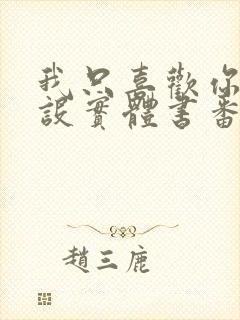 我只喜歡你
設實體書番
趙三鹿